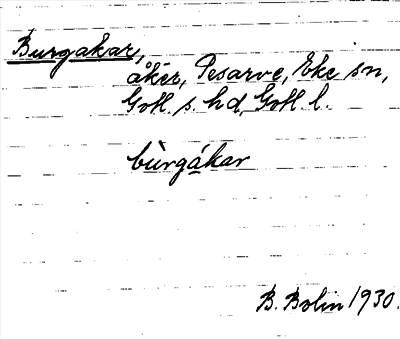 Burgakar,
åker, Pesarve, Eke sn,
Gotl. s. hd, Gotl l.
bùrgákar
B. Bolin 1930.